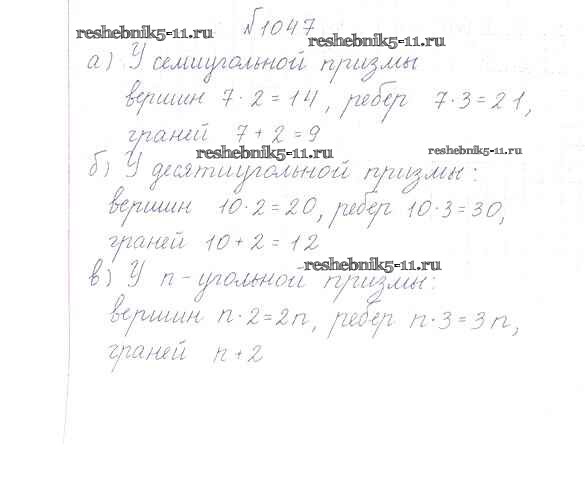 №1047
reshebnik5-11.ru reshebnik5-11.ru
а) У семиугольной призмы
вершин 7 · 2 = 14, ребер 7 · 3 = 21,
граней 7 + 2 = 9
reshebnik5-11.ru reshebnik5-11.ru
б) У десятиугольной призмы:
вершин 10 · 2 = 20, ребер 10 · 3 = 30,
граней 10 + 2 = 12
reshebnik5-11.ru
в) У n - угольной призмы:
вершин n · 2 = 2n, ребер n · 3 = 3n,
граней n + 2